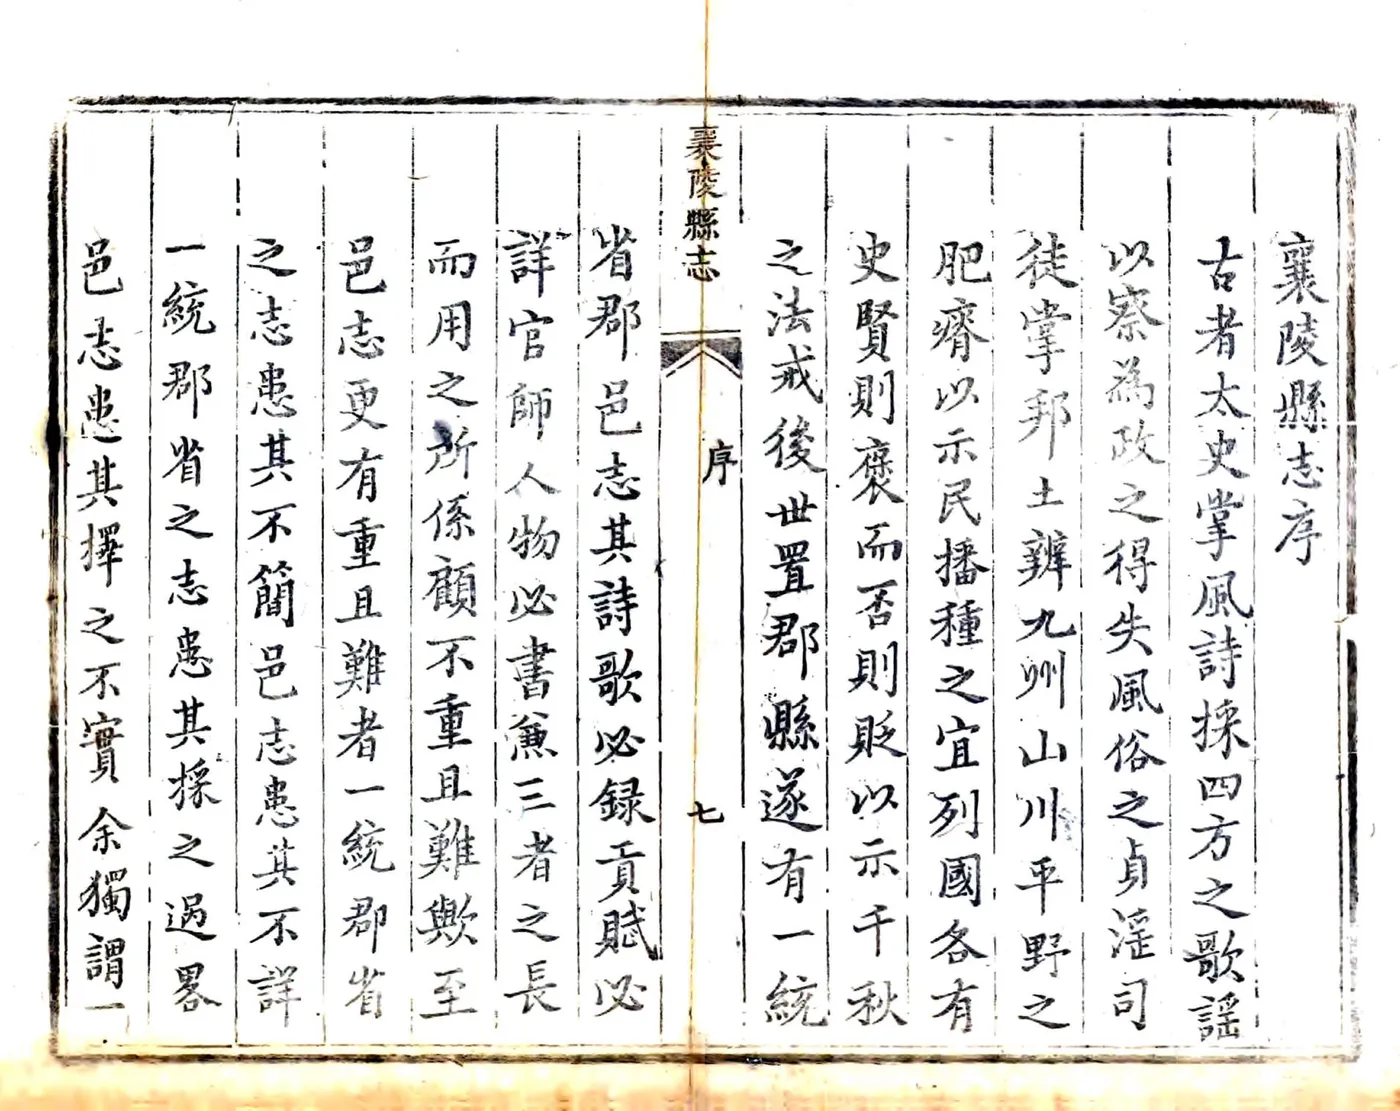 襄陵縣志序
古者太史掌風詩採四方之歌謡
以察為政之得失風俗之貞淫司
徒掌邦土辨九州山川平野之
肥瘠以示民播種之宜列國各有
史賢則褒而否則貶以示千秋
之法戒後世置郡縣遂有一統
襄陵縣志
序
七
省郡邑志其詩歌必録貢賦必
詳官師人物必書兼三者之長
而用之所係顧不重且難歟至
邑志更有重且難者一統郡省
之志患其不簡邑志患其不詳
一統郡省之志患其採之過畧
邑志患其擇之不實余獨謂一